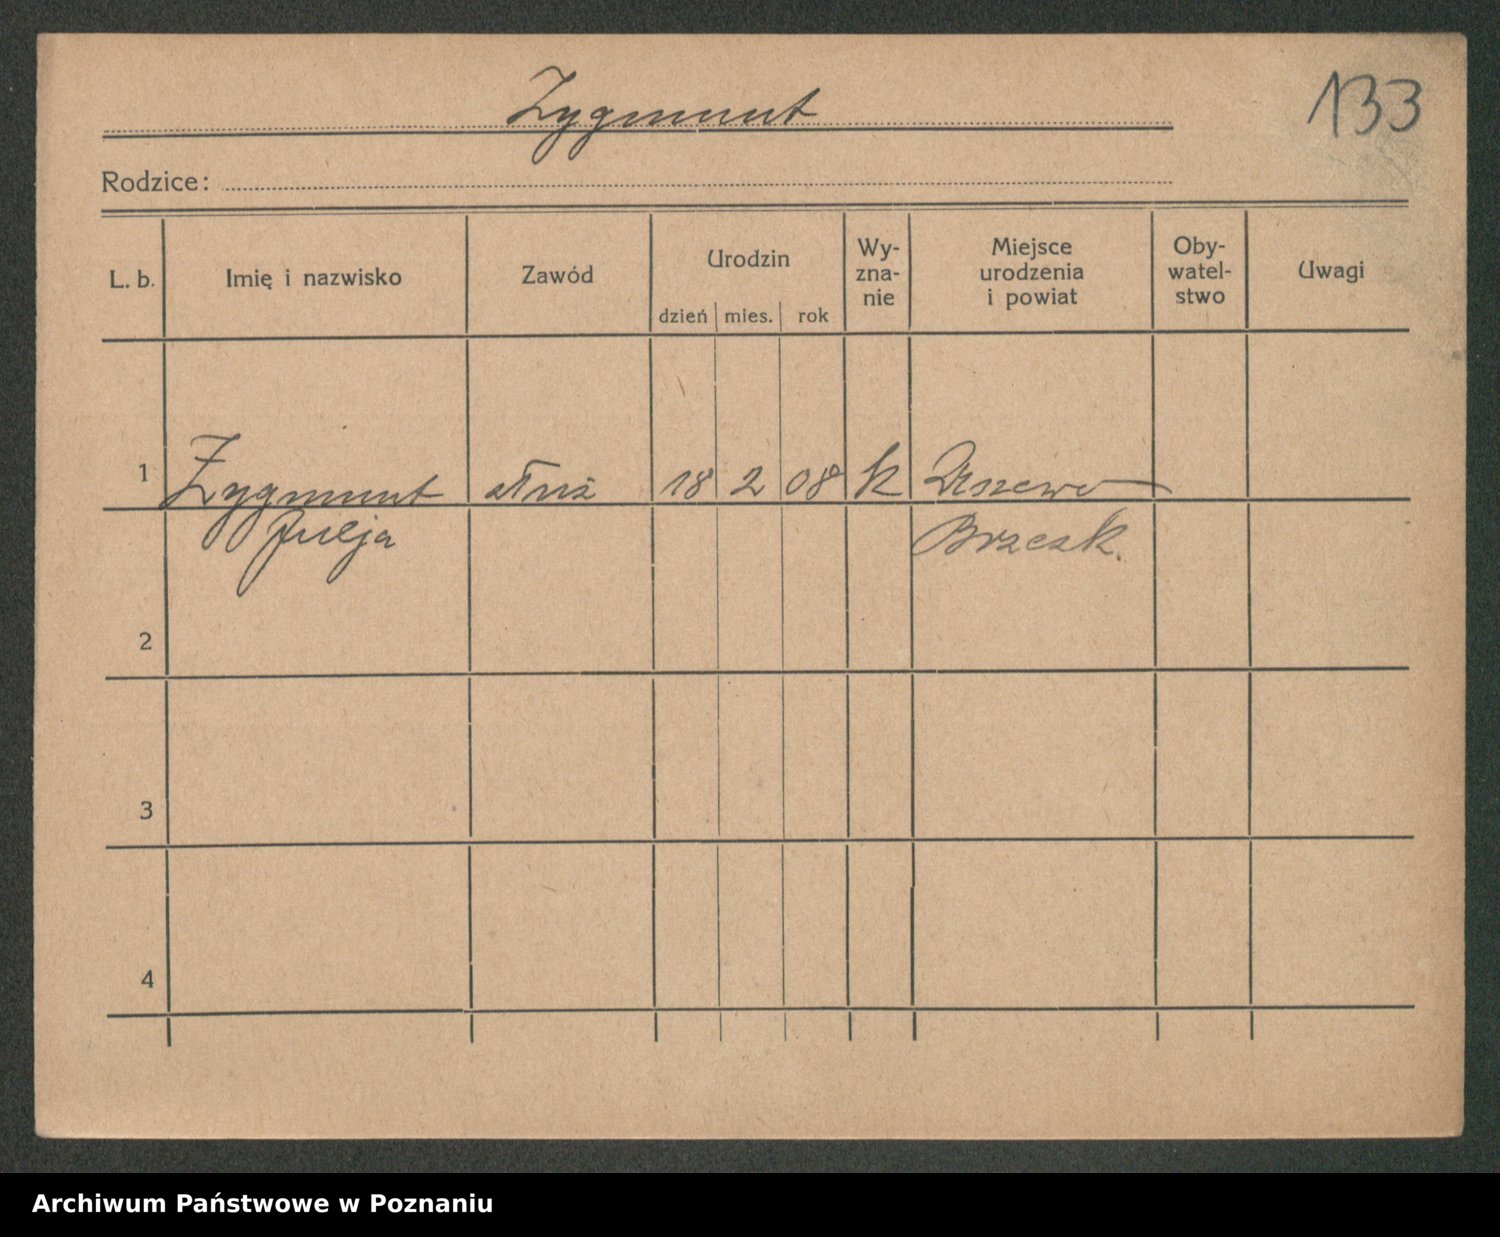 Zygmunt
133
Rodzice:
L. b. Imię i nazwisko Zawód Urodzin dzień mies. rok Wy-zna-nie Miejsce urodzenia i powiat Oby-watel-stwo Uwagi
1 Zygmunt służ 18 2 08 k Uszewo
Julja Brzesk.
2
3
4
Archiwum Państwowe w Poznaniu